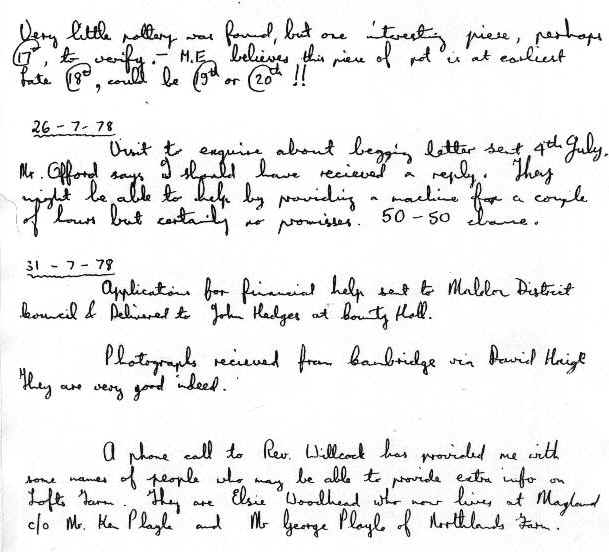 Very little pottery was found, but one interesting piece, perhaps
17th, to verify. - M.E. believes this piece of pot is at earliest
Late 18th, could be 19th or 20th !!
26 - 7 - 78
Visit to enquire about begging letter sent 4th July.
Mr. Offord says I should have recieved a reply. They
might be able to help by providing a machine for a couple
of hours but certainly no promisses. 50 - 50 chance.
31 - 7 - 78
Applications for financial help sent to Maldon District
Council & Delivered to John Hedges at County Hall.
Photographs recieved from Cambridge via David Haigh
They are very good indeed.
A phone call to Rev. Willcock has provided me with
some names of people who may be able to provide extra info on
Lofts Farm. They are Elsie Woodhead who now lives at
c/o Mr. Ken Playle and Mr George Playle of Northlands Farm.